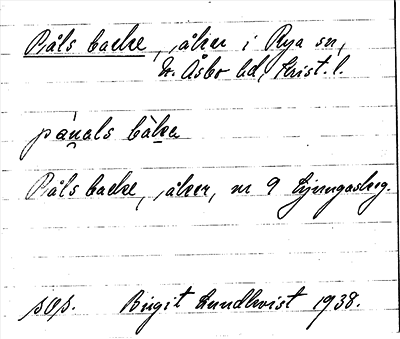 Påls backe, åker i Rya sn,
N. Åsbo hd, Krist. l.
pàu̯als bàkɛ
Påls backe, åker, nr 9 Ljungaskog.
sop. Birgit Lundkvist 1938.